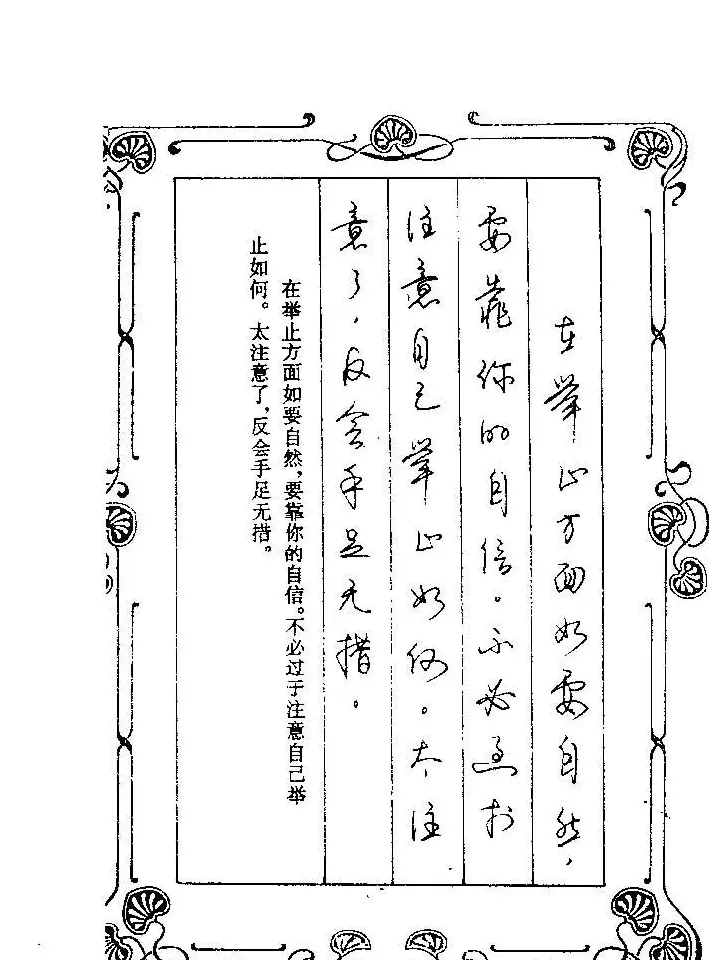 在举止方面如要自然，
要靠你的自信。不必过于
注意自己举止如何。太注
意了，反会手足无措。
在举止方面如要自然，要靠你的自信。不必过于注意自己举
止如何。太注意了，反会手足无措。